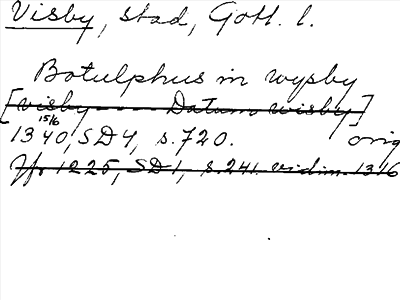 Visby, stad, Gotl. l.
Botulphus in wysby
[visby --- Datum wisby]
15/6
1340, SD4, s. 720. orig
Jfr 1225, SD1, s. 241. vidim. 1316